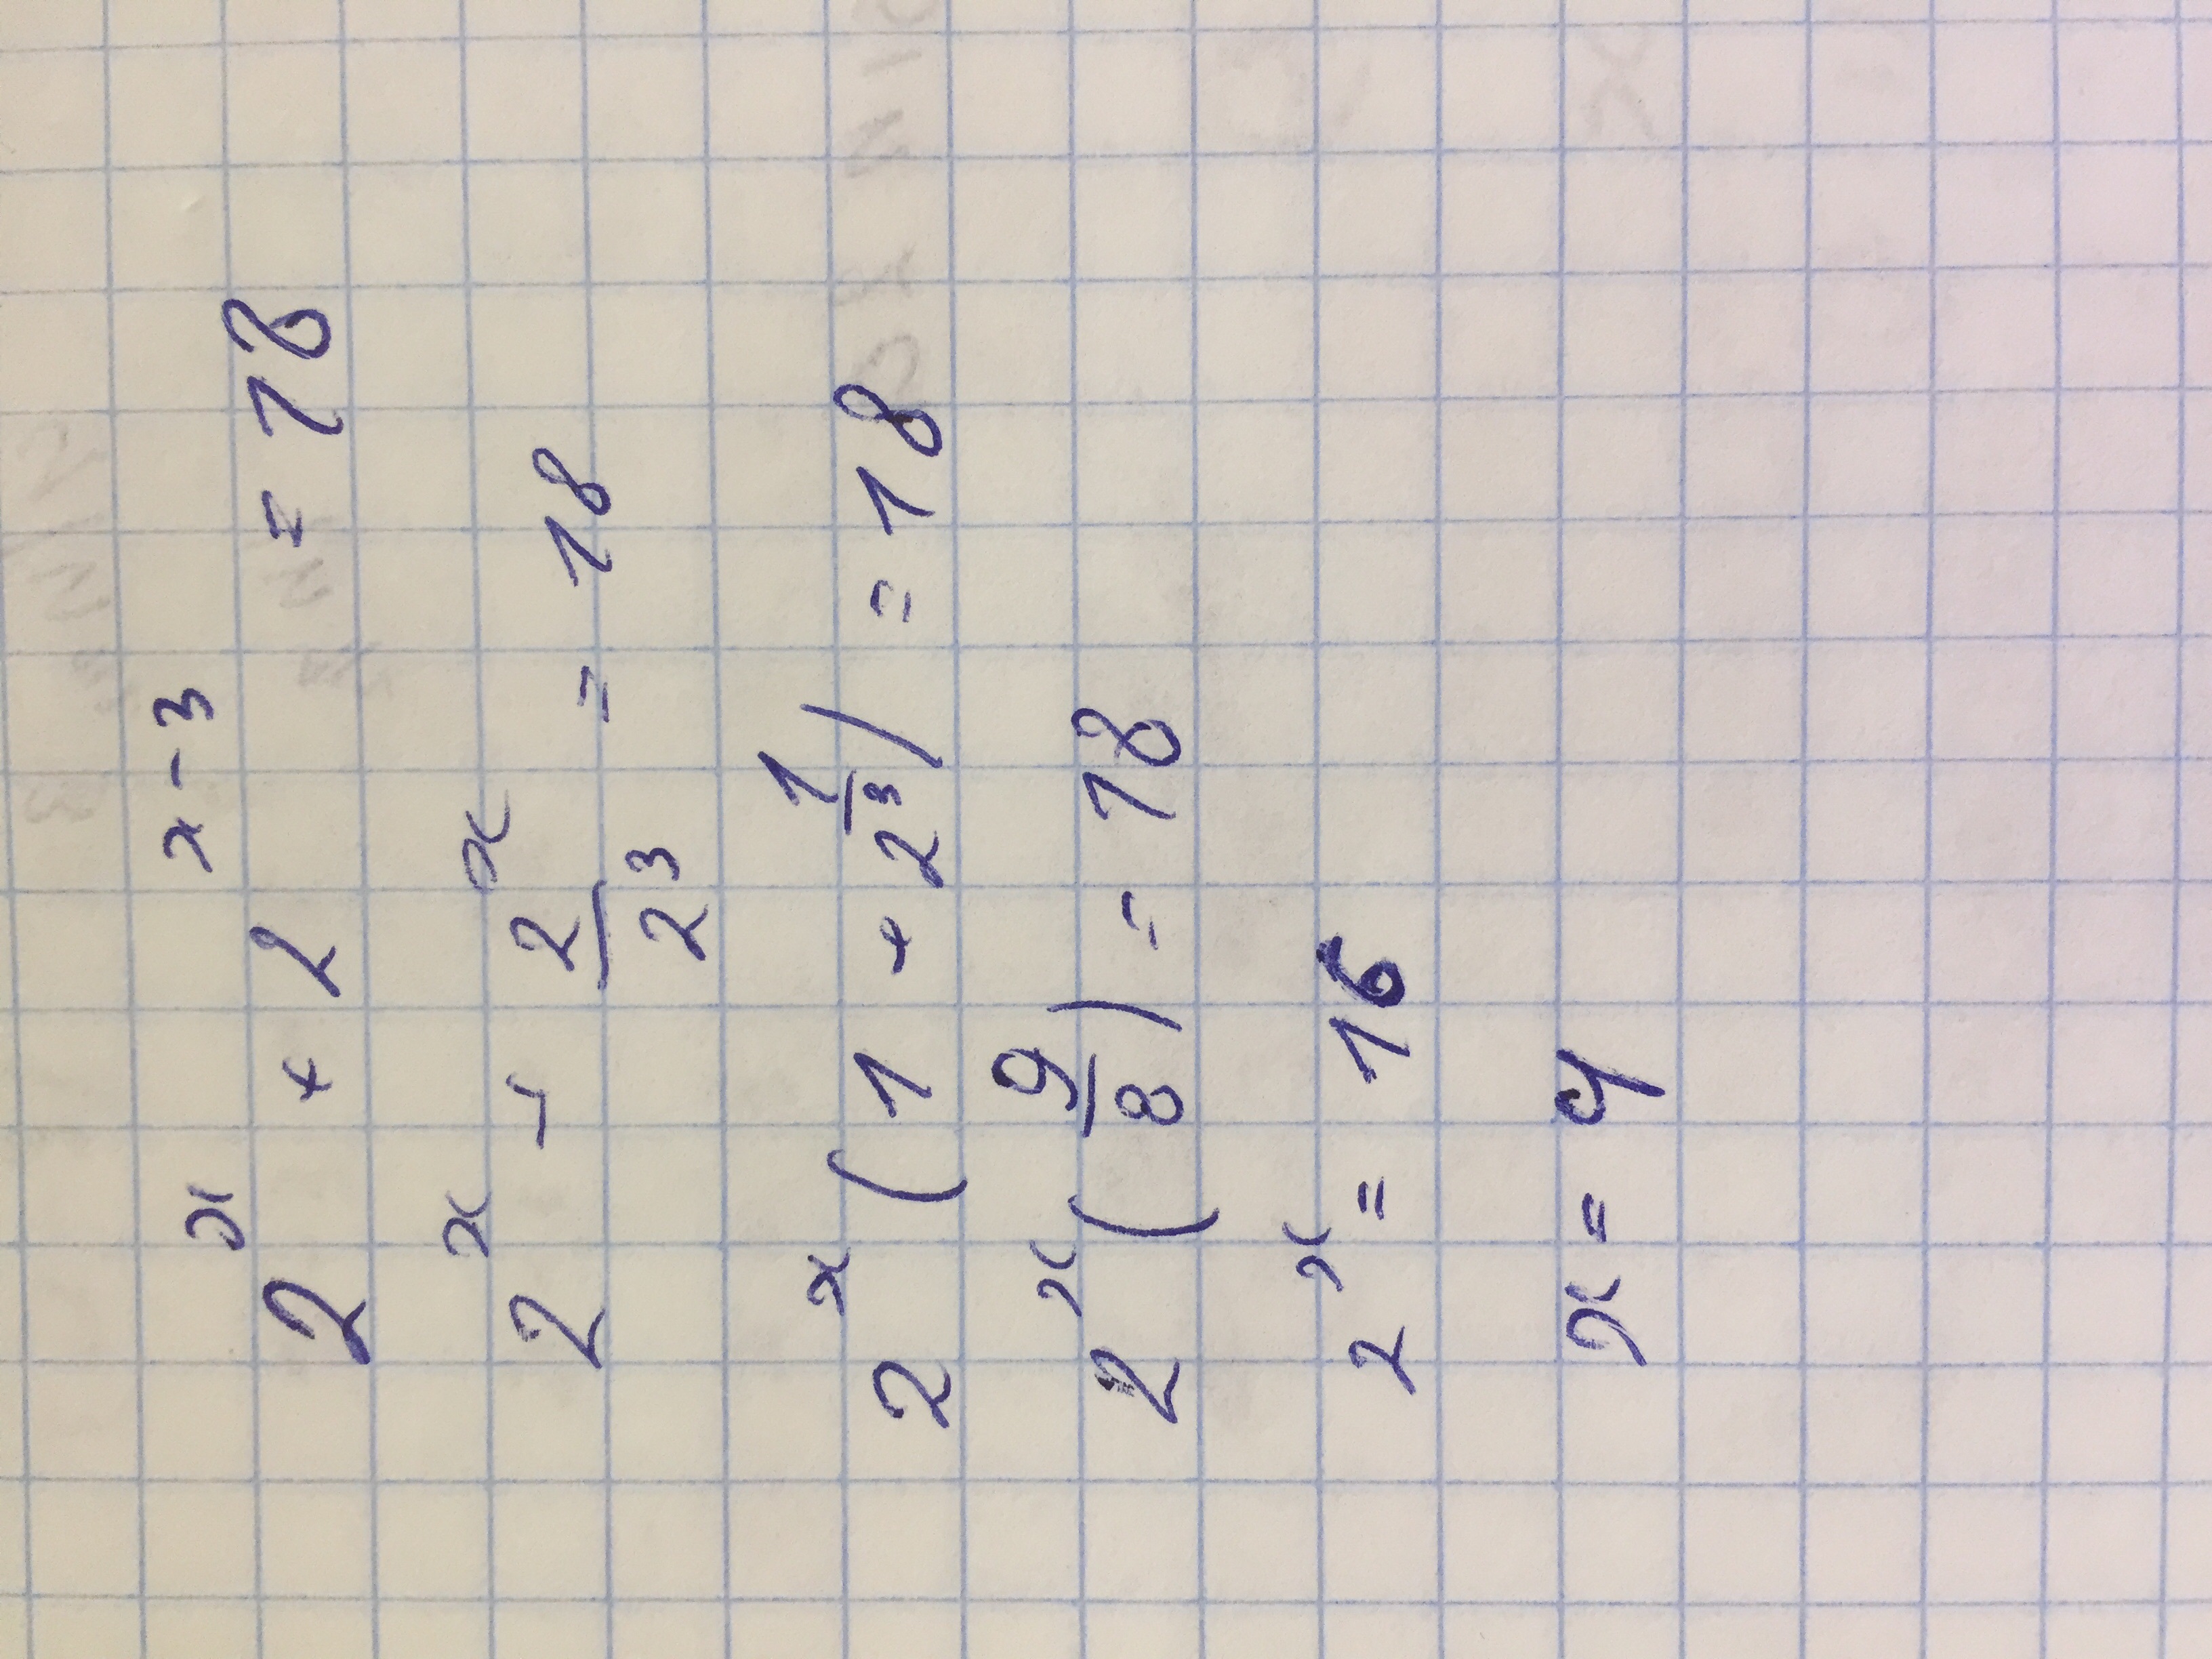 2^x + 2^(x-3) = 18
2^x + 2^x/2^3 = 18
2^x (1 + 1/2^3) = 18
2^x (9/8) = 18
2^x = 16
x = 4